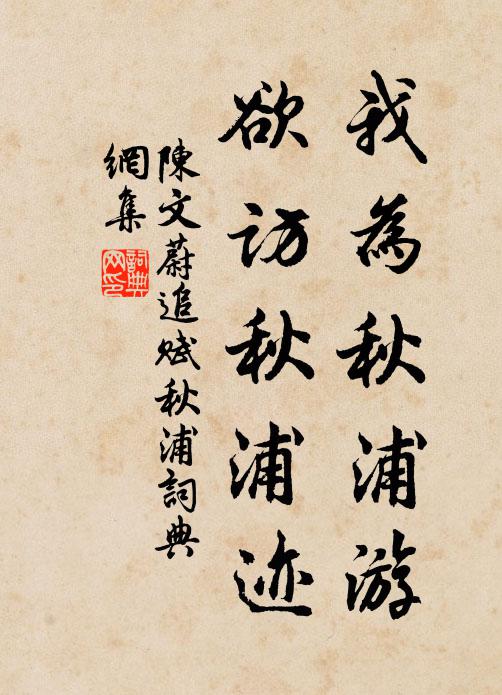 我為秋浦游
欲訪秋浦迹
陳文蔚追賦秋浦詞典
網集
詞典网印